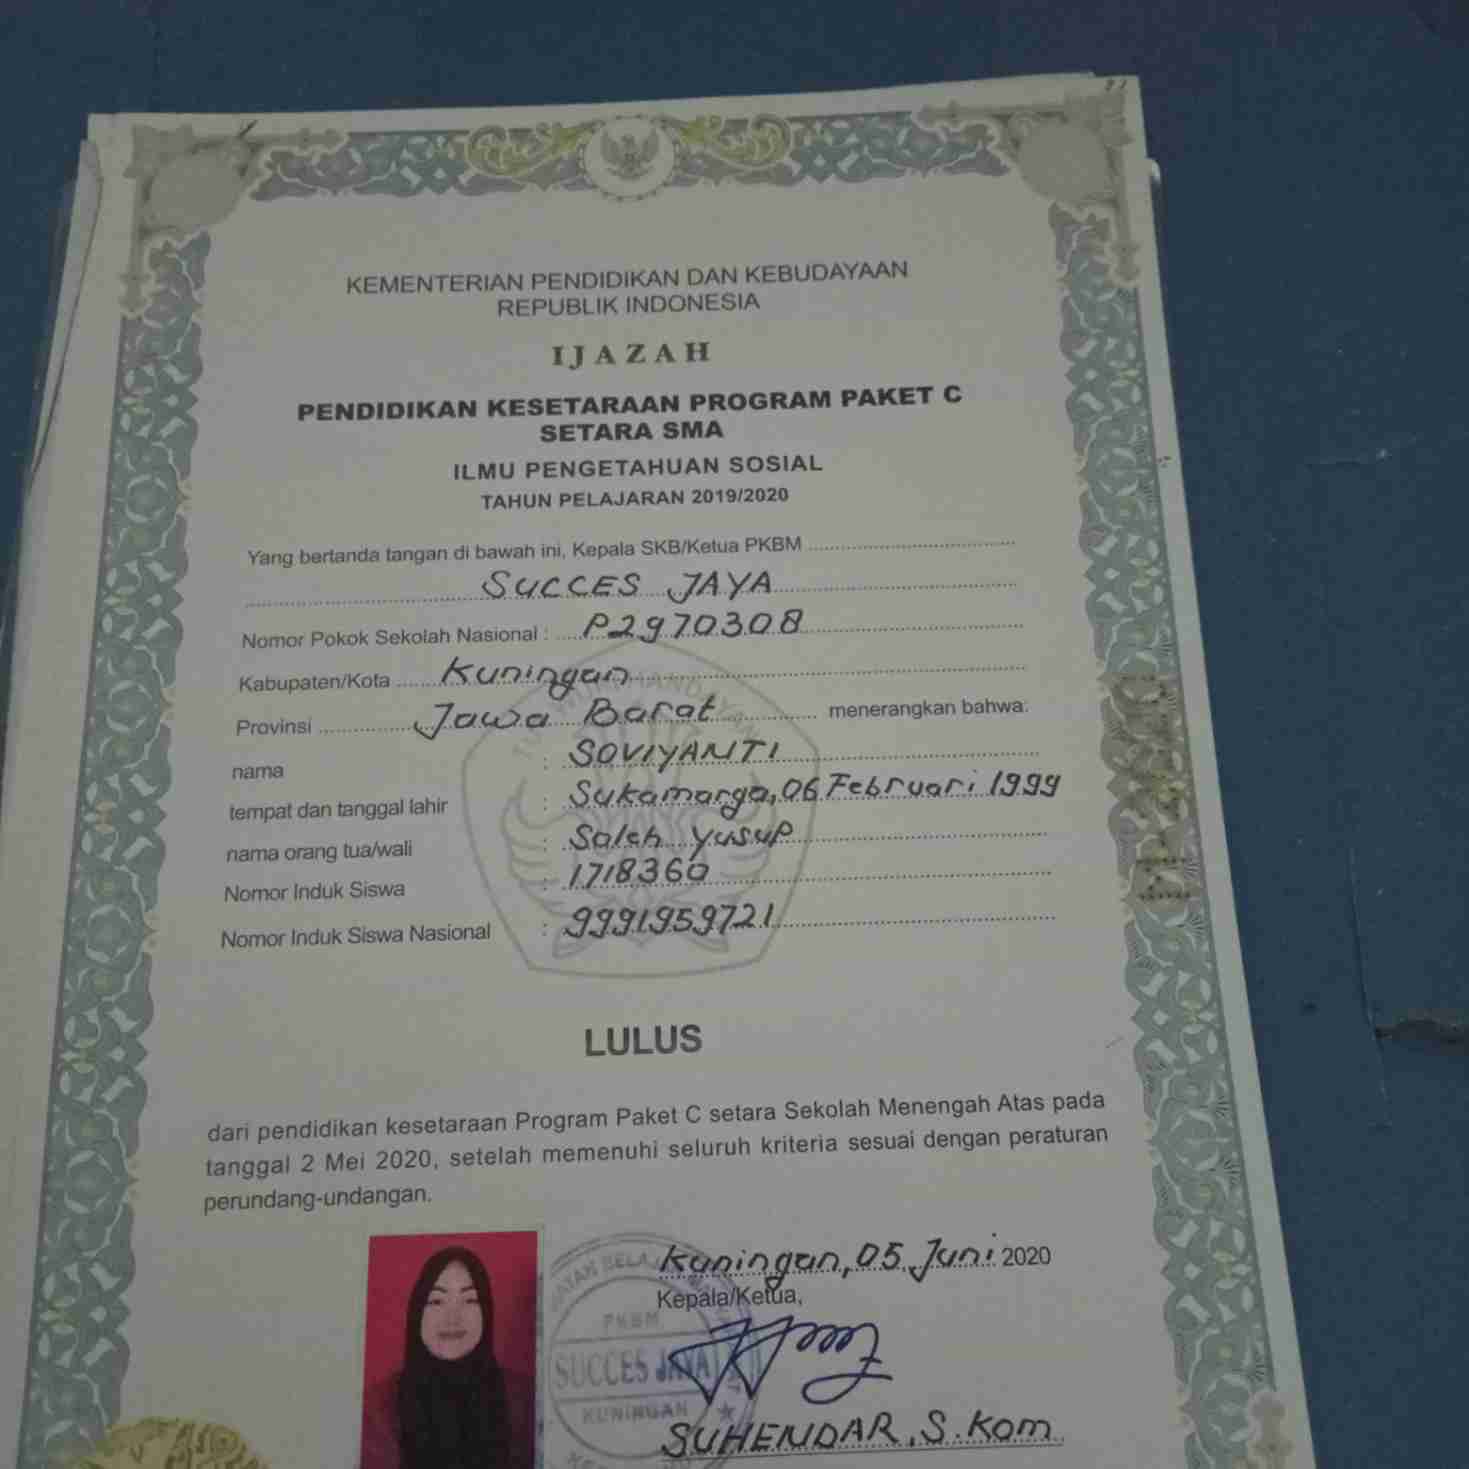 KEMENTERIAN PENDIDIKAN DAN KEBUDAYAAN
REPUBLIK INDONESIA
IJAZAH
PENDIDIKAN KESETARAAN PROGRAM PAKET C
SETARA SMA
ILMU PENGETAHUAN SOSIAL
TAHUN PELAJARAN 2019/2020
Yang bertanda tangan di bawah ini, Kepala SKB/Ketua PKBM
SUCCES JAYA
Nomor Pokok Sekolah Nasional : P2970308
Kabupaten/Kota Kuningan
Provinsi Jawa Barat menerangkan bahwa:
nama : SOVIYANTI
tempat dan tanggal lahir : Sukamarga, 06 Februari 1999
nama orang tua/wali : Saleh Yusup
Nomor Induk Siswa : 1718360
Nomor Induk Siswa Nasional : 9991959721
LULUS
dari pendidikan kesetaraan Program Paket C setara Sekolah Menengah Atas pada
tanggal 2 Mei 2020, setelah memenuhi seluruh kriteria sesuai dengan peraturan
perundang-undangan.
Kuningan, 05 Juni 2020
Kepala/Ketua,
PKBM
SUCCES JAYA
KUNINGAN
SUHENDAR, S.Kom